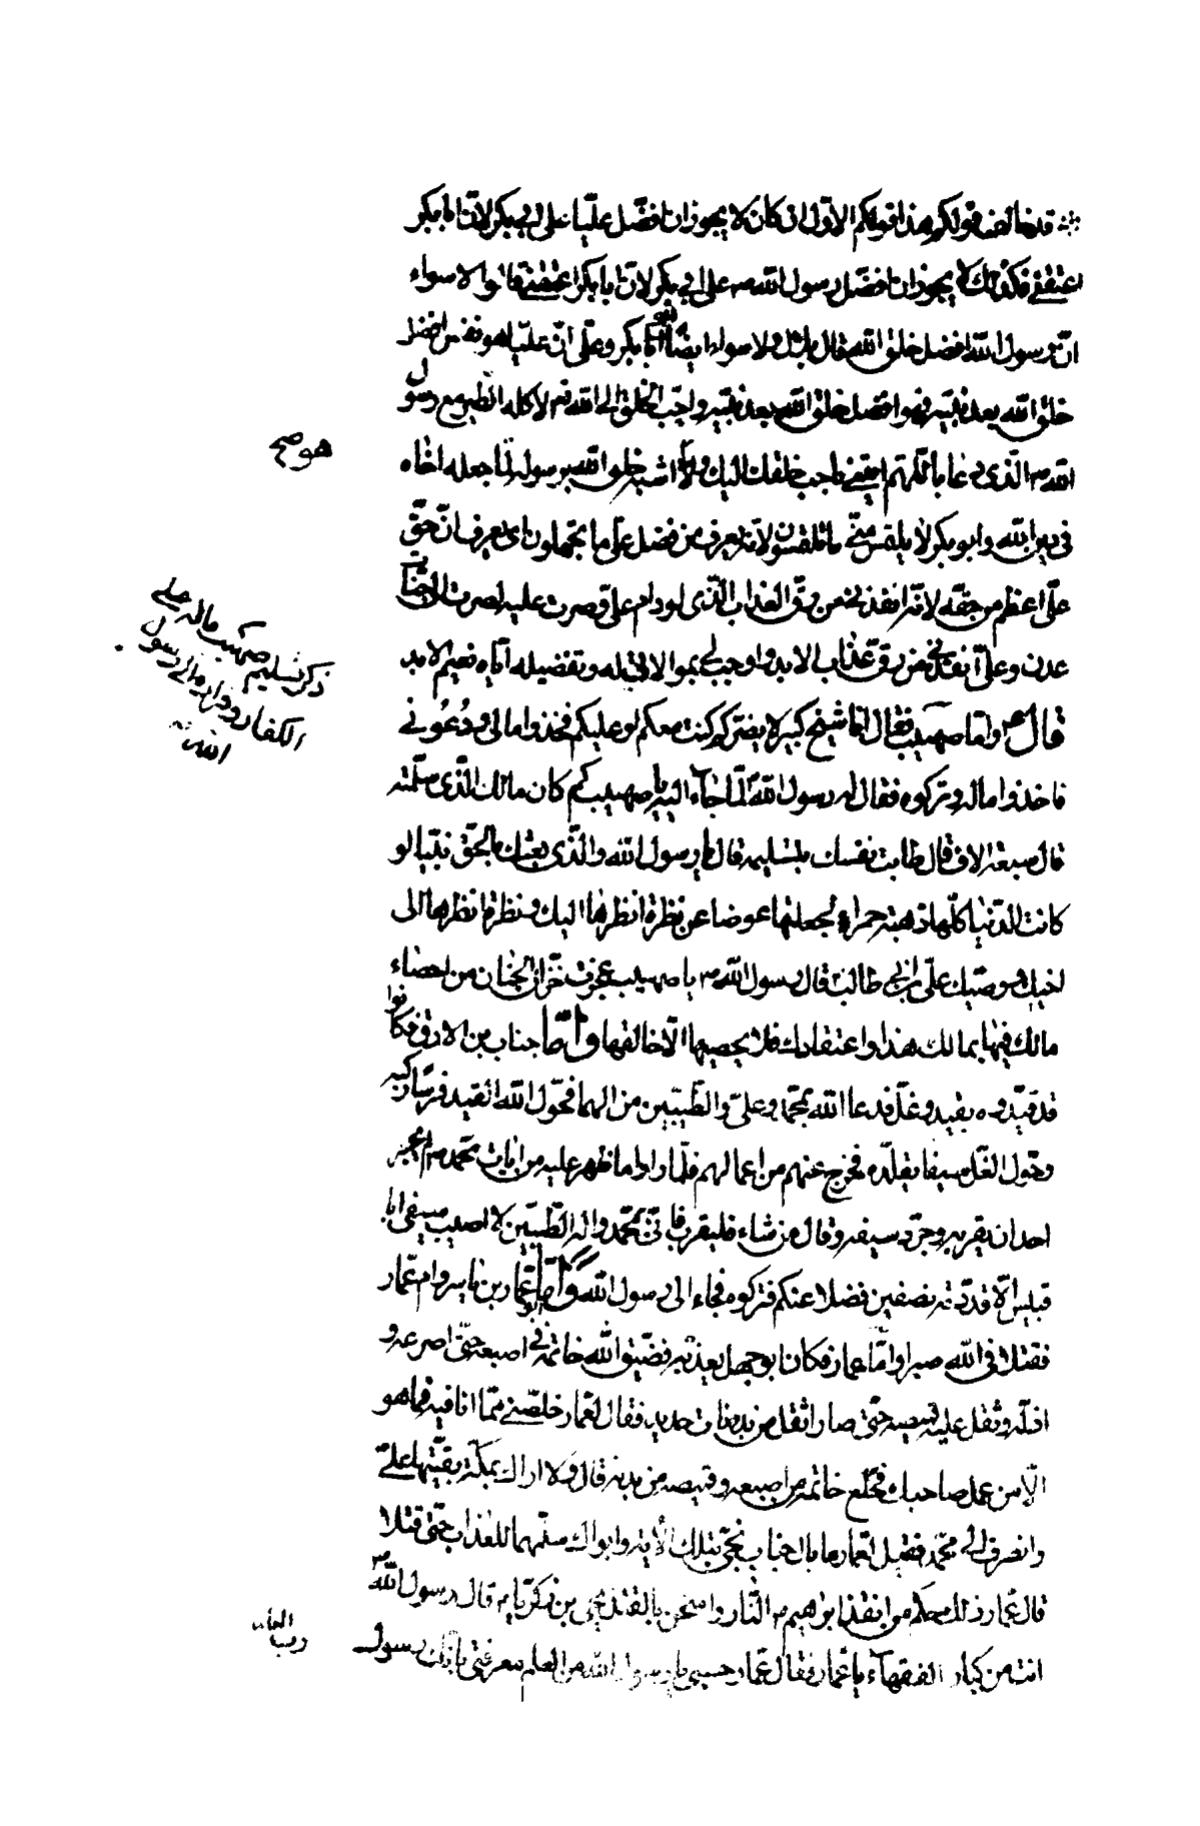 قد خالف قولكم هذا قولكم الاول ان كان لا يجوز ان افضل عليا على ابى بكر لان ابا بكر
اعتقنى فكذلك لا يجوز ان افضل رسول الله ص على ابى بكر لان ابا بكر اعتقنى قالوا لا سواء
ان رسول الله افضل خلق الله قال بلال ولا سواء ايضا ابا بكر وعلى ان عليا هو نفس افضل
خلق الله بعد نبيه فهو افضل خلق الله بعد نبيه واحب الخلق الى الله تع لاكله الطير مع رسول
الله ص الذى دعا باللهم ايتنى باحب خلقك اليك و اشبه خلق الله برسوله لما جعله اخاه
فى دين الله وابو بكر لا يلتمس منى ما تلتمسون لانه يعرف من فضل على ما تجهلون اى يعرف ان حق
على اعظم من حقه لانه انقذنى من رق العذاب الذى لو دام على وصبرت عليه لصرت الى جنات
عدن وعلى انقذنى من رق عذاب الابد واوجب لى بموالاتى له وتفضيله اياه نعيم الابد
قال ص واما صهيب فقال انا شيخ كبير لا يضركم كنت معكم او عليكم فخذوا مالى ودعونى
فاخذوا ماله وتركوه فقال له رسول الله لما جاء اليه يا صهيب كم كان مالك الذى سلمته
قال سبعة الاف قال طابت نفسك بتسليمه قال يا رسول الله والذى بعثك بالحق نبيا لو
كانت الدنيا كلها ذهبة حمراء لجعلتها عوضا عن نظرة انظرها اليك ونظرة انظرها الى
اخيك ووصيك على بن ابى طالب قال رسول الله ص يا صهيب عجزت خزان الجنان من احصاء
مالك فيها بمالك هذا واعتقادك فلا يحصيها الا خالقها واما جناب بن الارت فكانوا
قد قيدوه بقيد وغل فدعا الله بمحمد وعلى والطيبين من الهما فحول الله القيد فرسا ركبه
وحول الغل سيفا يقلده فخرج عنهم من اعمالهم فلما راوا ما ظهر عليه من ايات محمد لم يجسر
احد ان يقربه وجرد سيفه وقال من شاء فليقرب فانى بمحمد واله الطيبين لا اصيب بسيفى ابا
قبيس الا قددته نصفين فضلا عنكم فتركوه فجاء الى رسول الله واما عمار بن ياسر وام عمار
فقتلا فى الله صبرا واما عمار فكان ابو جهل يعذبه فضيق الله خاتمه فى اصبعه حتى اصرعه و
اذله وثقل عليه قميصه حتى صار اثقل من بدنات حديد فقال لعمار خلصنى مما انا فيه فما هو
الا من عمل صاحبك فخلع خاتمه من اصبعه وقميصه من بدنه قال ولا اراك بمكة بقيتها على
وانصرف الى محمد فقيل لعمار ما بال جناب نجى بتلك الاية وابواك سلمهما للعذاب حتى قتلا
قال عمار ذلك حكم من انقذ ابراهيم من النار وامتحن بالقتل يحيى بن زكريا قال رسول الله ص
انت من كبار الفقهاء يا عمار فقال عمار حسبى يا رسول الله من العلم معرفتى بانك رسول
هو صح
ذكر تسليم صهيب ماله على
الكفار وفراره الى رسول
الله
رب العا